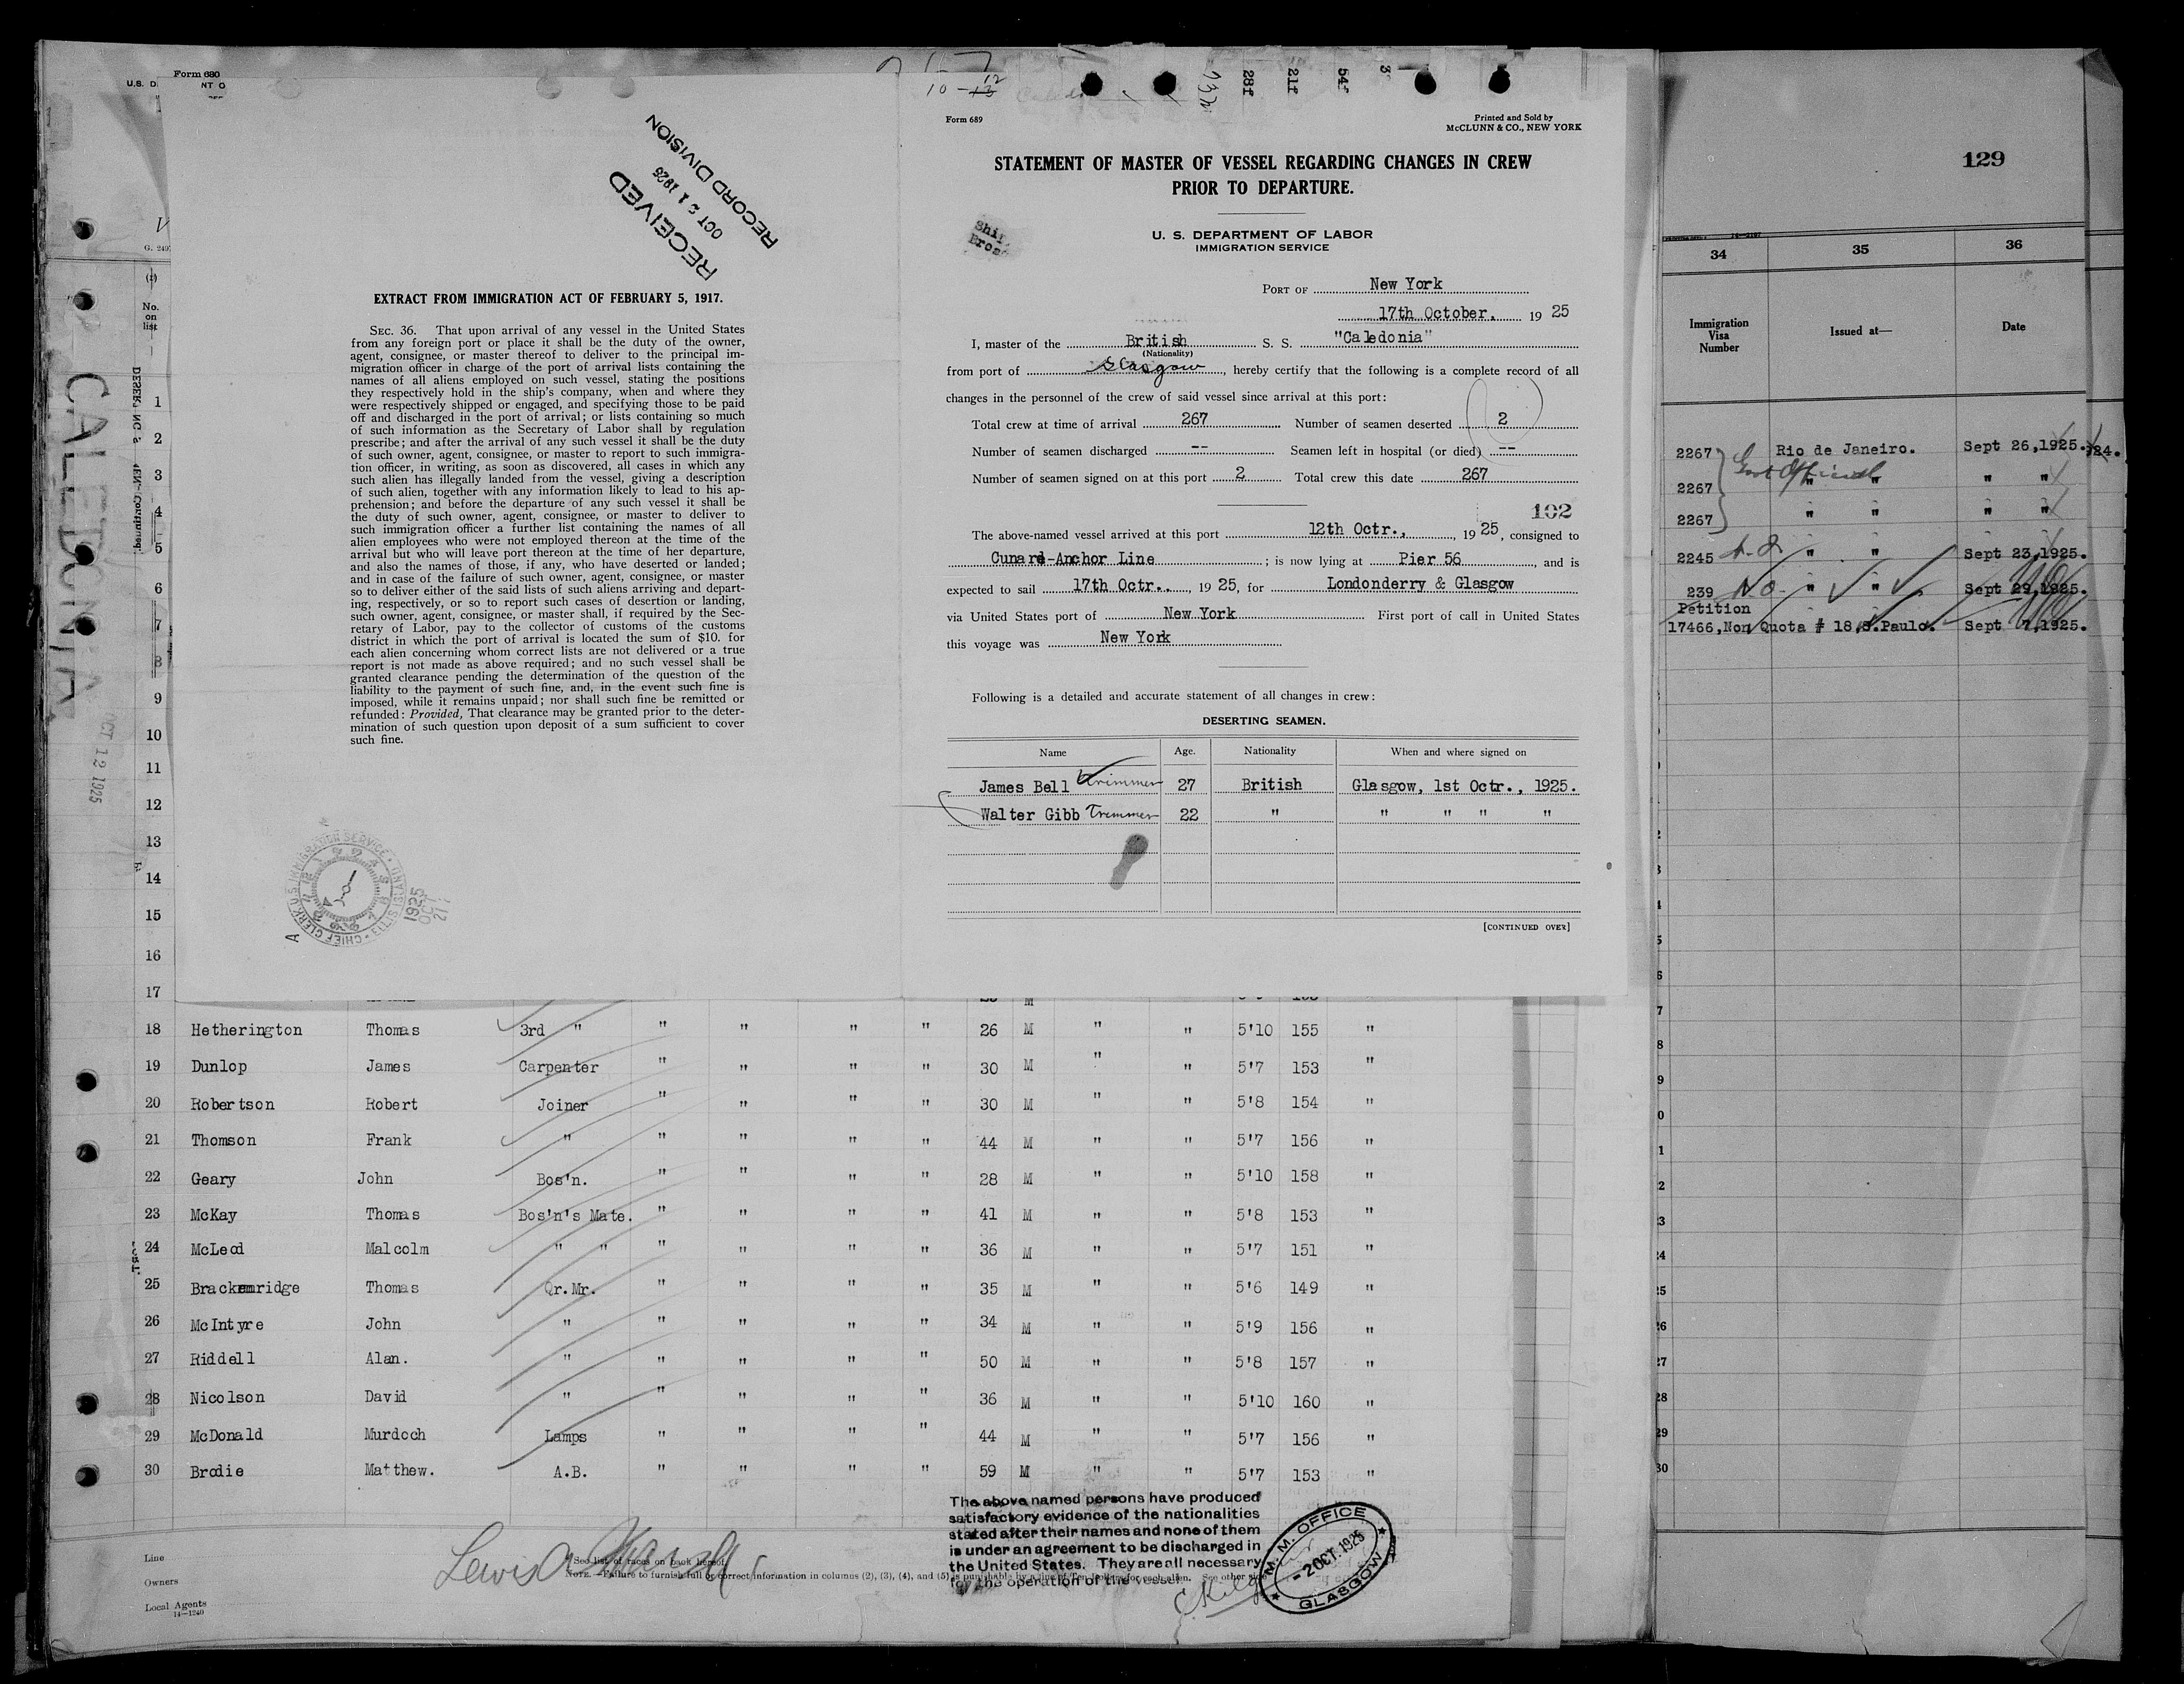 Form 680
U.S. D
NT O
G. 249
No.
on
list
1
2
3
4
5
6
7
8
9
10
11
12
13
14
15
16
17
CALEDONIA
OCT 12 1925
RECEIVED
OCT 21 1925
RECORD DIVISION
EXTRACT FROM IMMIGRATION ACT OF FEBRUARY 5, 1917.
SEC. 36. That upon arrival of any vessel in the United States
from any foreign port or place it shall be the duty of the owner,
agent, consignee, or master thereof to deliver to the principal im-
migration officer in charge of the port of arrival lists containing the
names of all aliens employed on such vessel, stating the positions
they respectively hold in the ship's company, when and where they
were respectively shipped or engaged, and specifying those to be paid
off and discharged in the port of arrival; or lists containing so much
of such information as the Secretary of Labor shall by regulation
prescribe; and after the arrival of any such vessel it shall be the duty
of such owner, agent, consignee, or master to report to such immigra-
tion officer, in writing, as soon as discovered, all cases in which any
such alien has illegally landed from the vessel, giving a description
of such alien, together with any information likely to lead to his ap-
prehension; and before the departure of any such vessel it shall be
the duty of such owner, agent, consignee, or master to deliver to
such immigration officer a further list containing the names of all
alien employees who were not employed thereon at the time of the
arrival but who will leave port thereon at the time of her departure,
and also the names of those, if any, who have deserted or landed;
and in case of the failure of such owner, agent, consignee, or master
so to deliver either of the said lists of such aliens arriving and depart-
ing, respectively, or so to report such cases of desertion or landing,
such owner, agent, consignee, or master shall, if required by the Sec-
retary of Labor, pay to the collector of customs of the customs
district in which the port of arrival is located the sum of $10. for
each alien concerning whom correct lists are not delivered or a true
report is not made as above required; and no such vessel shall be
granted clearance pending the determination of the question of the
liability to the payment of such fine, and, in the event such fine is
imposed, while it remains unpaid; nor shall such fine be remitted or
refunded: Provided, That clearance may be granted prior to the deter-
mination of such question upon deposit of a sum sufficient to cover
such fine.
CHIEF CLERK U.S. IMMIGRATION SERVICE · ELLIS ISLAND
1925
OCT
21
Form 689
Printed and Sold by
McCLUNN & CO., NEW YORK
STATEMENT OF MASTER OF VESSEL REGARDING CHANGES IN CREW
PRIOR TO DEPARTURE.
U. S. DEPARTMENT OF LABOR
IMMIGRATION SERVICE
PORT OF New York
17th October, 19 25
I, master of the British S. S. "Caledonia"
(Nationality)
from port of Glasgow, hereby certify that the following is a complete record of all
changes in the personnel of the crew of said vessel since arrival at this port:
Total crew at time of arrival 267 Number of seamen deserted 2
Number of seamen discharged -- Seamen left in hospital (or died) --
Number of seamen signed on at this port 2 Total crew this date 267
102
The above-named vessel arrived at this port 12th Octr., 19 25, consigned to
Cunard-Anchor Line ; is now lying at Pier 56, and is
expected to sail 17th Octr., 19 25, for Londonderry & Glasgow
via United States port of New York First port of call in United States
this voyage was New York
Following is a detailed and accurate statement of all changes in crew:
DESERTING SEAMEN.
Name Age. Nationality When and where signed on
James Bell Trimmer 27 British Glasgow, 1st Octr., 1925.
Walter Gibb Trimmer 22 " " " " "
[CONTINUED OVER]
129
34 35 36
Immigration
Visa
Number
Issued at—
Date
2267 Rio de Janeiro. Sept 26,1925.
Govt Official
2267 " " " "
2267 " " " "
2245 " " Sept 23,1925.
239 No " " Sept 29,1925.
Petition
17466, Non Quota # 18,S.Paulo. Sept 7,1925.
18 Hetherington Thomas 3rd " " " " " 26 M " " 5'10 155 "
19 Dunlop James Carpenter " " " " 30 M " " 5'7 153 "
20 Robertson Robert Joiner " " " " 30 M " " 5'8 154 "
21 Thomson Frank " " " " " 44 M " " 5'7 156 "
22 Geary John Bos'n. " " " " 28 M " " 5'10 158 "
23 McKay Thomas Bos'n's Mate. " " " " 41 M " " 5'8 153 "
24 McLeod Malcolm " " " " " " 36 M " " 5'7 151 "
25 Brackenridge Thomas Qr.Mr. " " " " 35 M " " 5'6 149 "
26 McIntyre John " " " " " 34 M " " 5'9 156 "
27 Riddell Alan. " " " " " 50 M " " 5'8 157 "
28 Nicolson David " " " " " 36 M " " 5'10 160 "
29 McDonald Murdoch Lamps " " " " 44 M " " 5'7 156 "
30 Brodie Matthew. A.B. " " " " 59 M " " 5'7 153 "
The above named persons have produced
satisfactory evidence of the nationalities
stated after their names and none of them
is under an agreement to be discharged in
the United States. They are all necessary
for the operation of the vessel.
M. M. OFFICE
-2 OCT. 1925
GLASGOW
Line
Owners
Local Agents
14—1240
*See list of races on back hereof.
NOTE.—Failure to furnish full or correct information in columns (2), (3), (4), and (5) is punishable by a fine of Ten Dollars for each alien. See other side